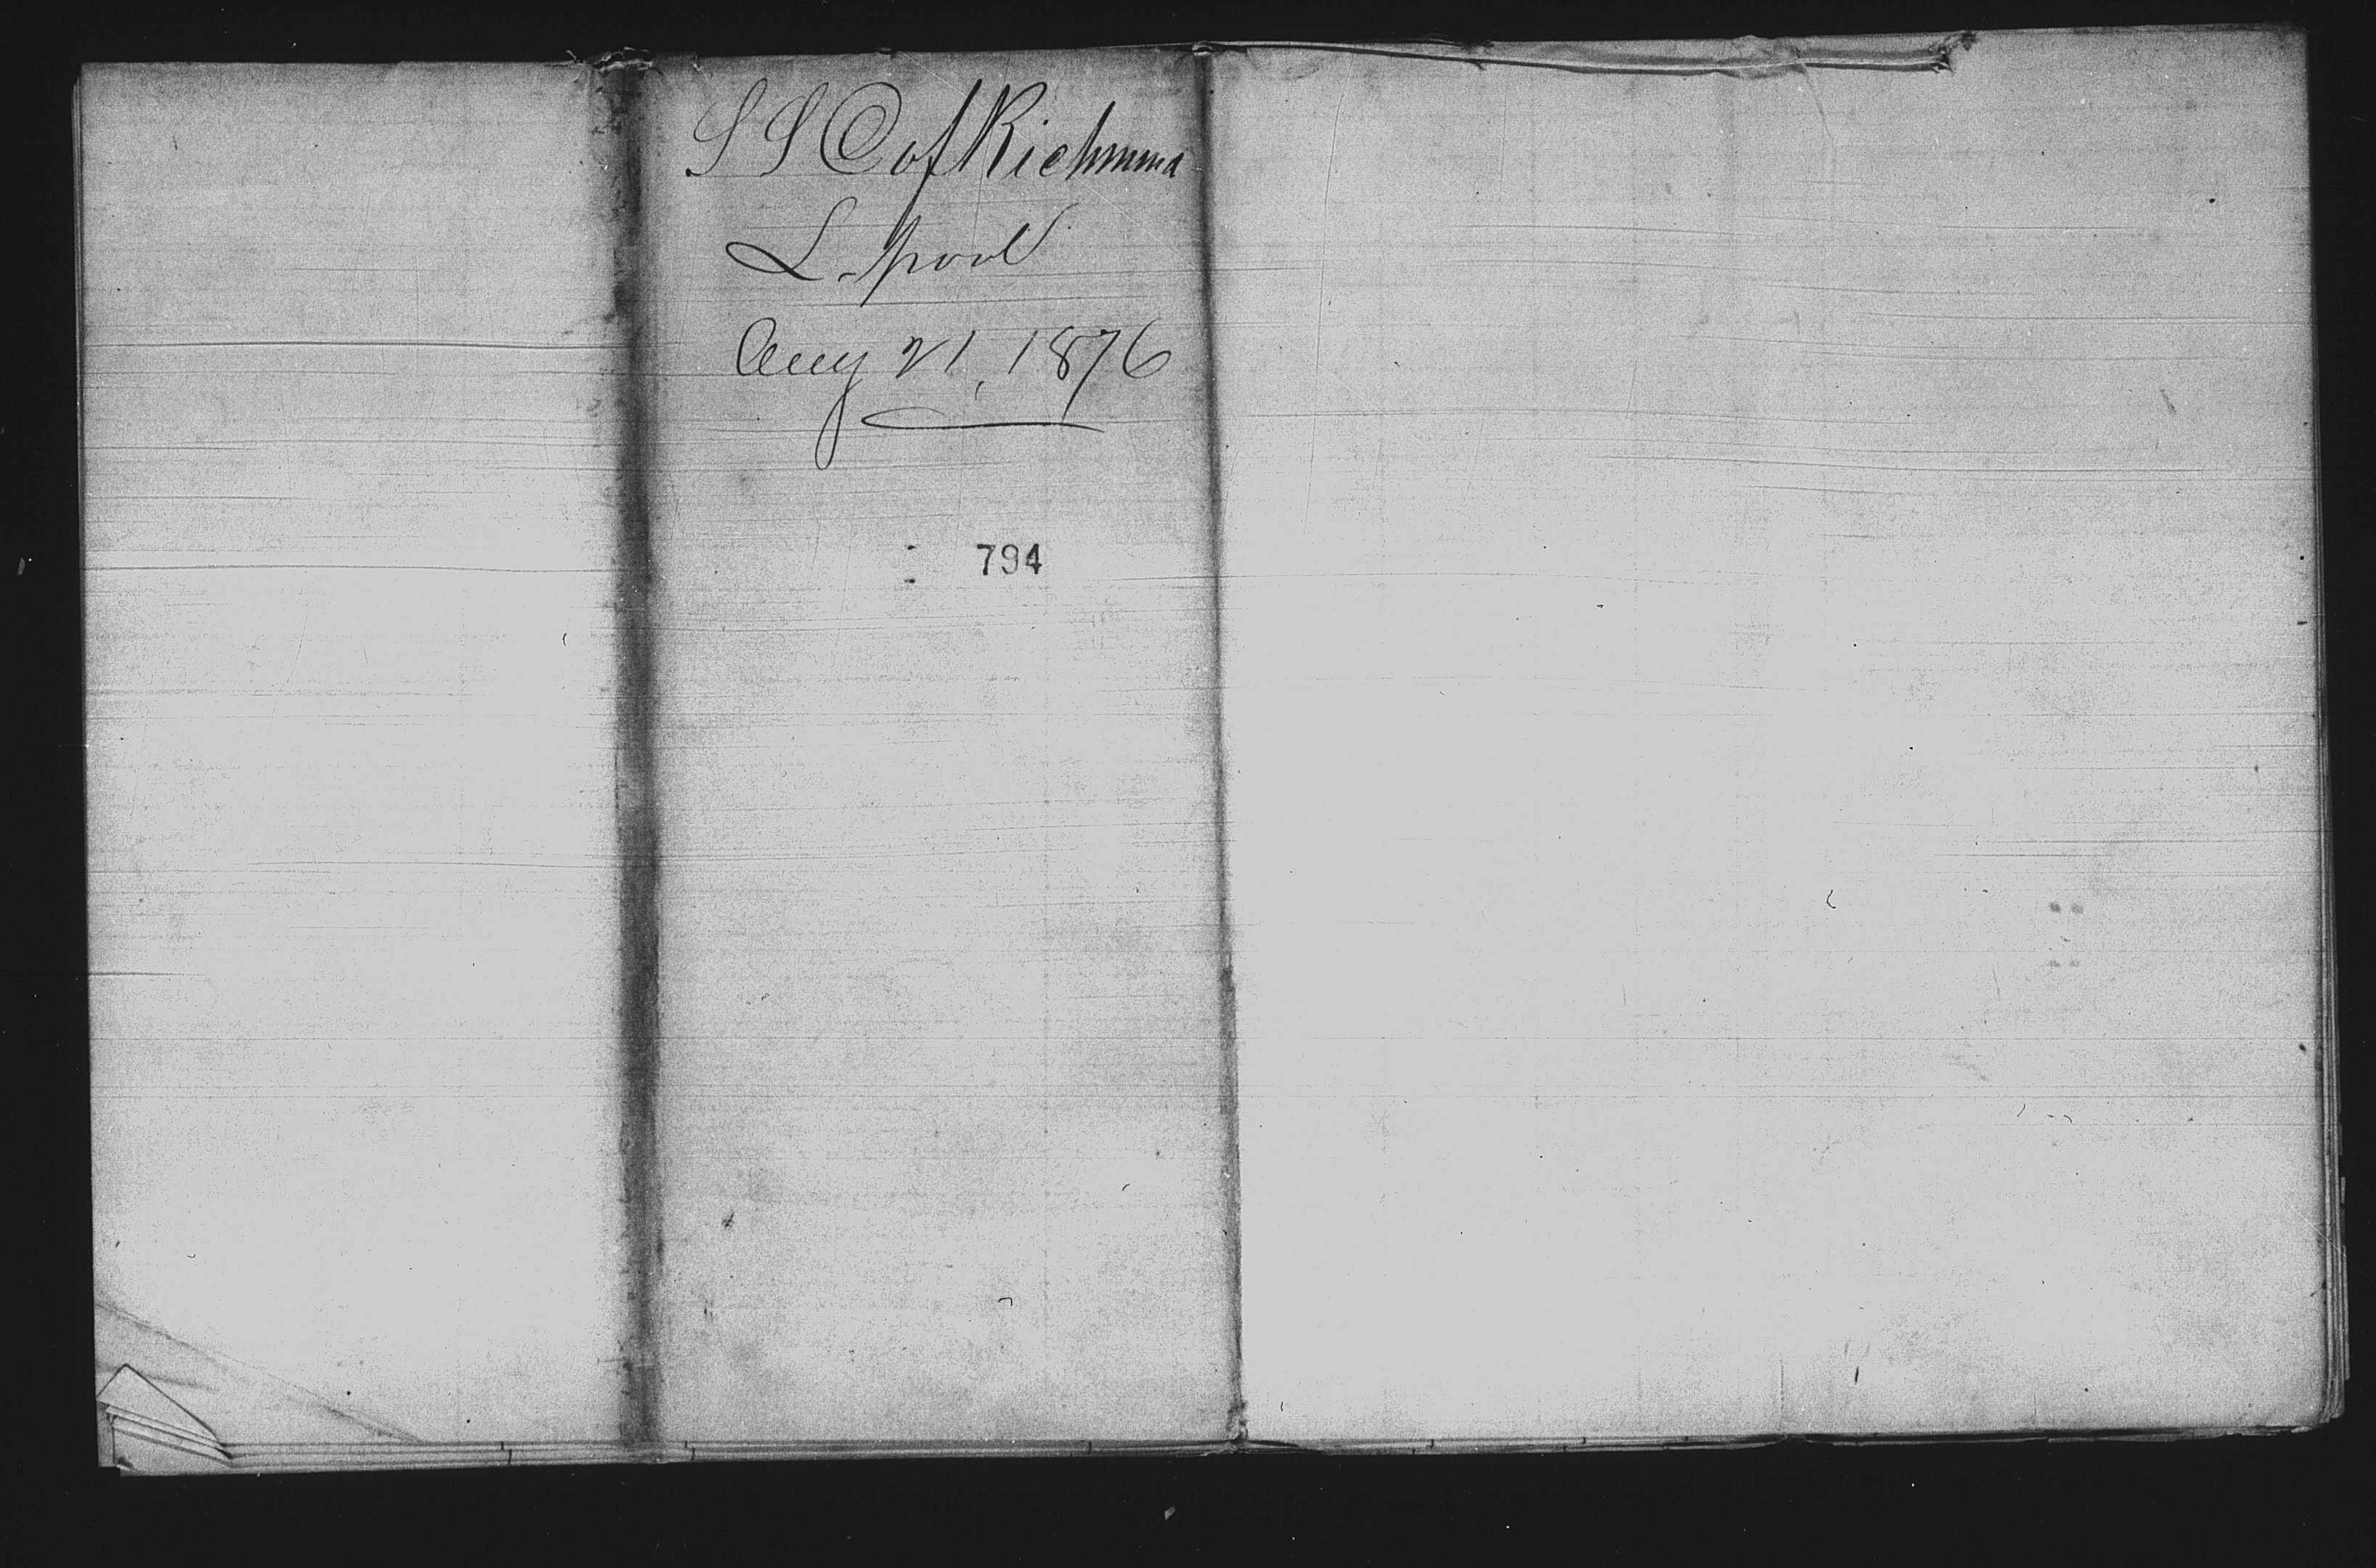 S S C of Richmond
L-pool
Aug 21, 1876
794